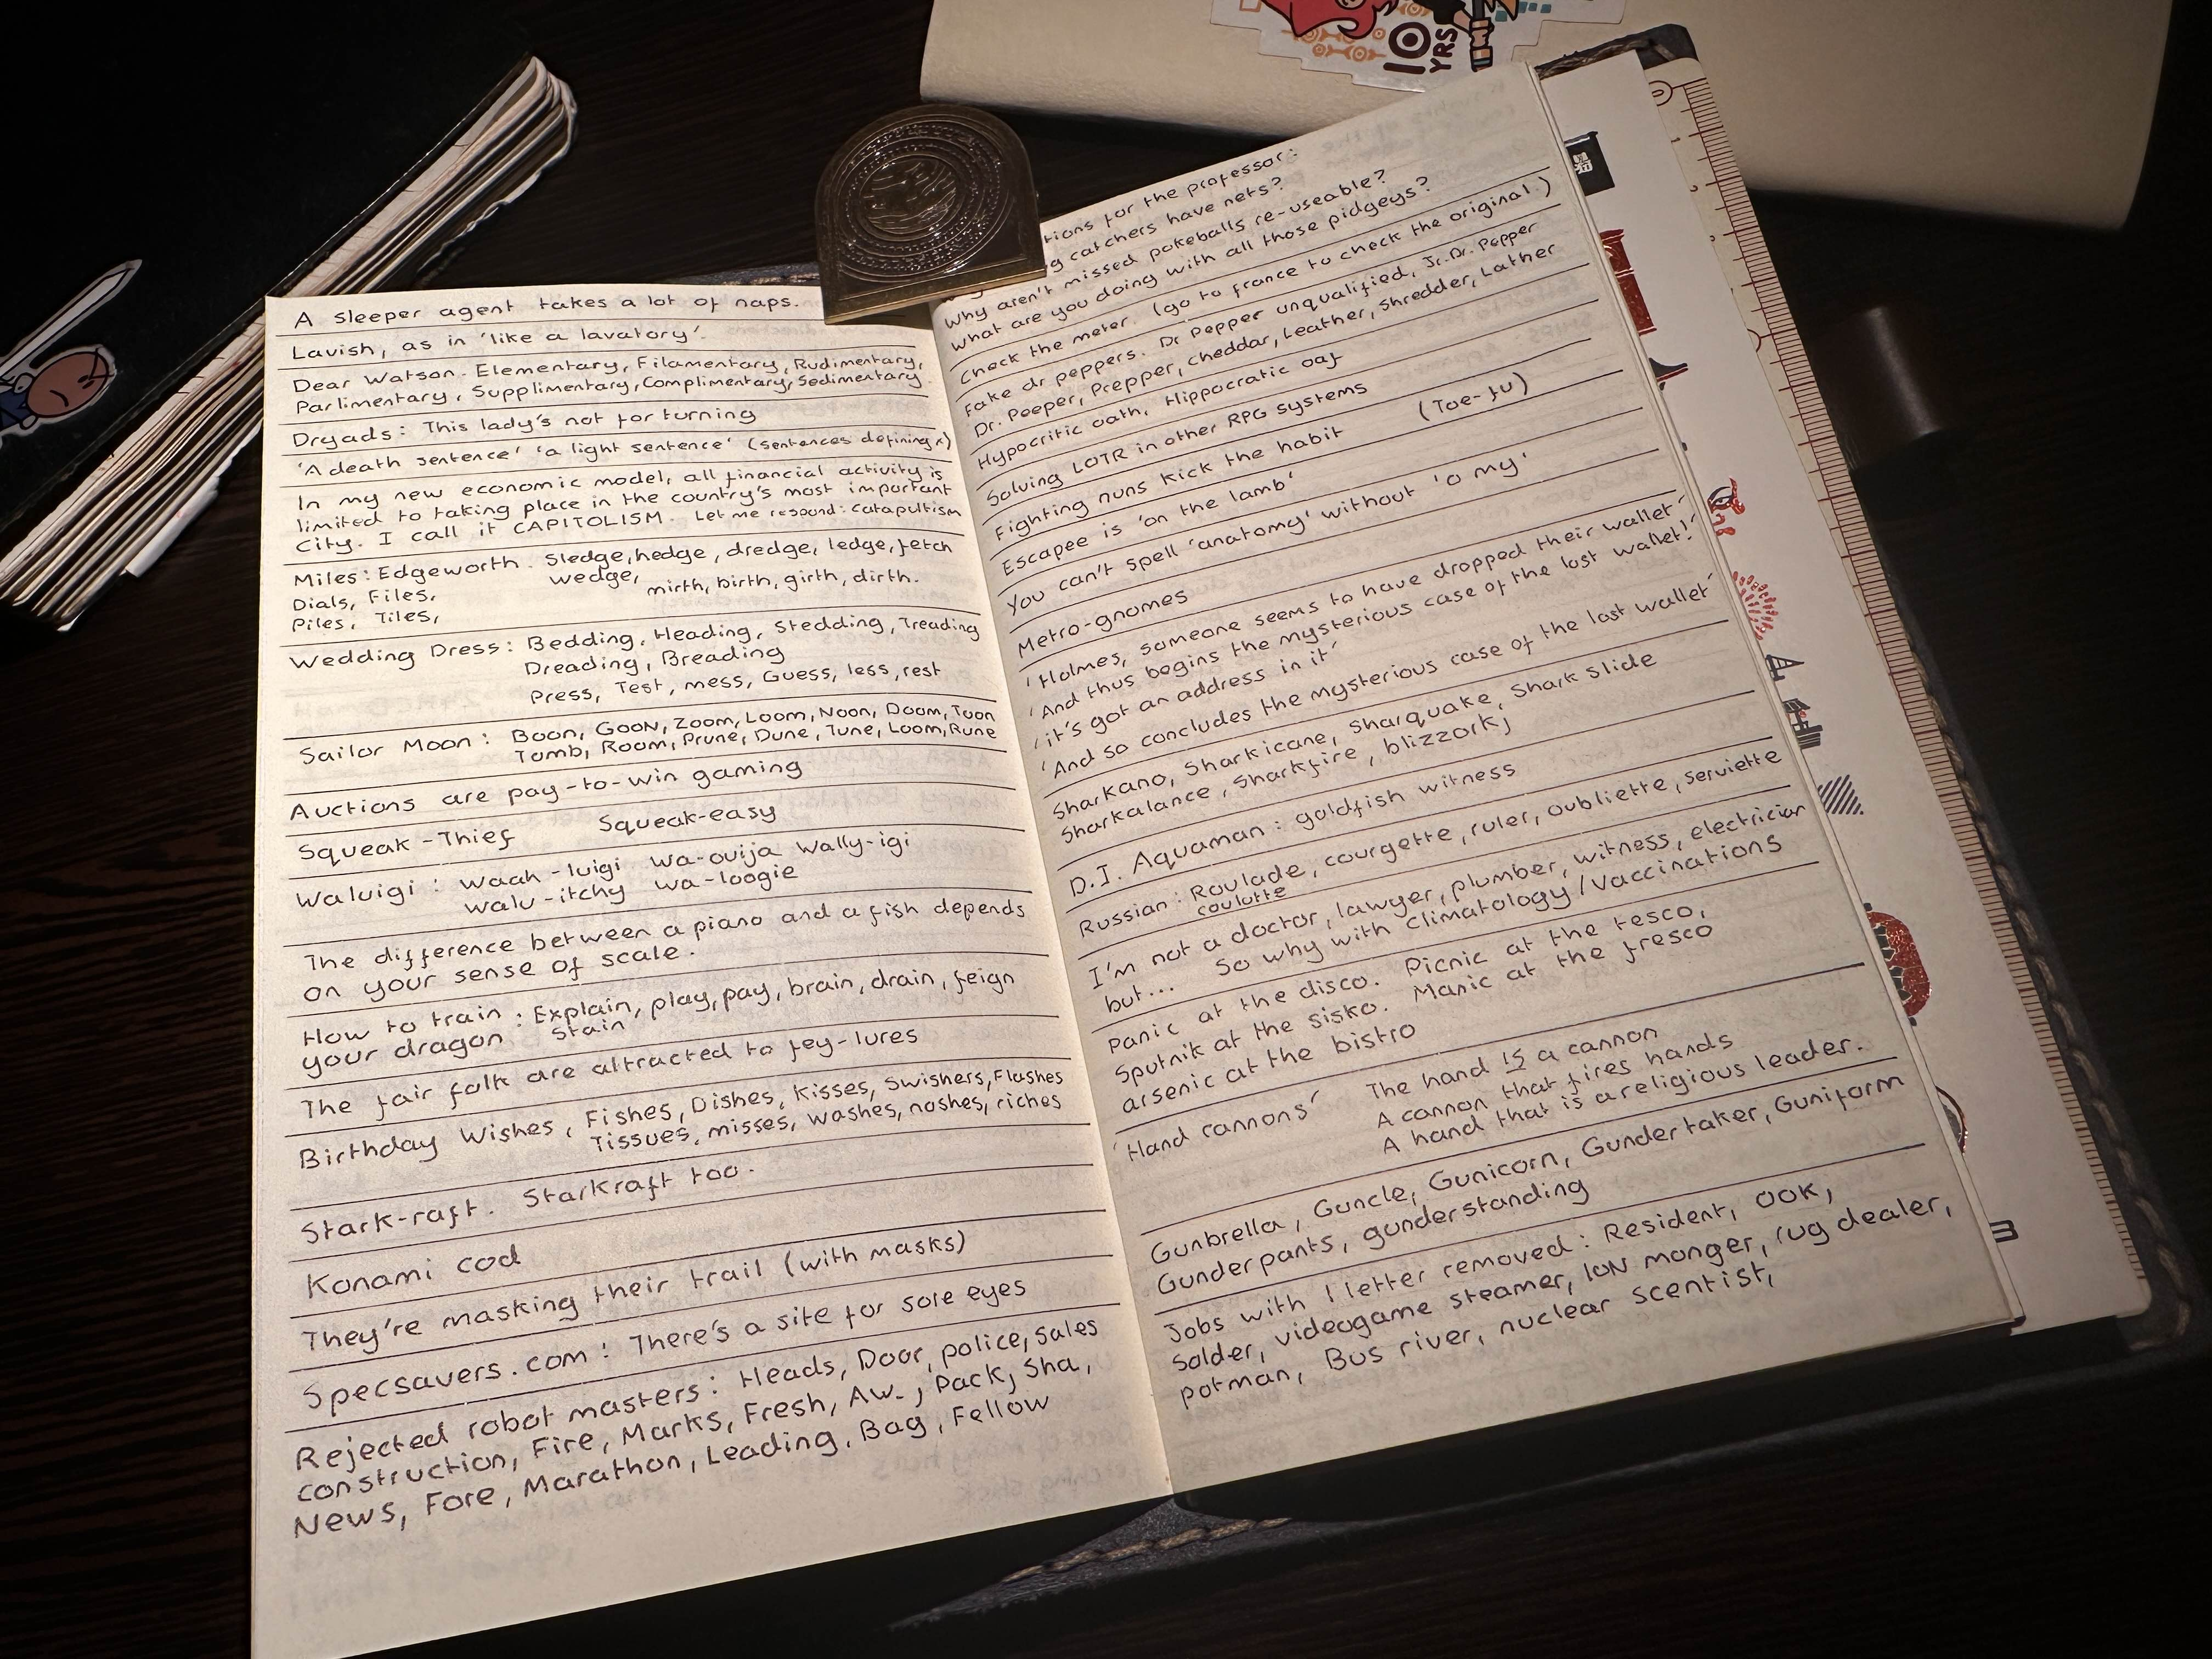 10
YRS
A sleeper agent takes a lot of naps.
Lavish, as in 'like a lavatory'.
Dear Watson. Elementary, Filamentary, Rudimentary,
Parlimentary, Supplimentary, Complimentary, Sedimentary.
Dryads: This lady's not for turning
'A death sentence' 'a light sentence' (sentences defining
In my new economic model, all financial activity is
limited to taking place in the country's most important
City. I call it CAPITOLISM. Let me respond: catapultism
Miles: Edgeworth. Sledge, hedge, dredge, ledge, fetch
Dials, Files, wedge, mirth, birth, girth, dirth.
Piles, Tiles,
Wedding Dress: Bedding, Heading, Stedding, Treading
Dreading, Breading
Press, Test, mess, Guess, less, rest
Sailor Moon: Boon, Goon, Zoom, Loom, Noon, Doom, Toon
Tomb, Room, Prune, Dune, Tune, Loom, Rune
Auctions are pay-to-win gaming
Squeak-Thief Squeak-easy
Waluigi: waah-luigi wa-ouija Wally-igi
walu-itchy wa-loogie
The difference between a piano and a fish depends
on your sense of scale.
How to train : Explain, play, pay, brain, drain, feign
your dragon stain
The fair folk are attracted to fey-lures
Birthday Wishes, Fishes, Dishes, Kisses, Swishers, Flashes
Tissues, misses, washes, noshes, riches
Stark-raft. Starkraft too.
Konami cod
They're masking their trail (with masks)
Specsavers.com: There's a site for sore eyes
Rejected robot masters: Heads, Door, police, Sales
construction, Fire, Marks, Fresh, Aw-, Pack, Sha,
News, Fore, Marathon, Leading, Bag, Fellow
tions for the professor:
catchers have nets?
Why aren't missed pokeballs re-useable?
What are you doing with all those pidgeys?
Check the meter. (go to france to check the original.)
Fake dr peppers. Dr Pepper unqualified, Jr. Dr. Pepper
Dr. Peeper, Prepper, Cheddar, Leather, Shredder, Lather
Hypocritic oath, Hippocratic oaf
Solving LOTR in other RPG systems
Fighting nuns kick the habit (Toe-fu)
Escapee is 'on the lamb'
You can't spell 'anatomy' without 'o my'
Metro-gnomes
'Holmes, someone seems to have dropped their wallet'
'And thus begins the mysterious case of the lost wallet!'
'it's got an address in it'
'And so concludes the mysterious case of the lost wallet'
Sharkano, Sharkicane, Sharquake, Shark slide
Sharkalance, Sharkfire, blizzorkj
D.I. Aquaman: goldfish witness
Russian: Roulade, courgette, ruler, oubliette, serviette
coulotte
I'm not a doctor, lawyer, plumber, witness, electrician
but... So why with Climatology/Vaccinations
Panic at the disco. Picnic at the tesco,
Sputnik at the sisko. Manic at the fresco
arsenic at the bistro
'Hand cannons' The hand is a cannon
A cannon that fires hands
A hand that is a religious leader.
Gunbrella, Guncle, Gunicorn, Gundertaker, Guniform
Gunderpants, gunderstanding
Jobs with 1 letter removed: Resident, OOK,
Solder, videogame steamer, ION monger, rug dealer,
potman, Bus river, nuclear scentist,